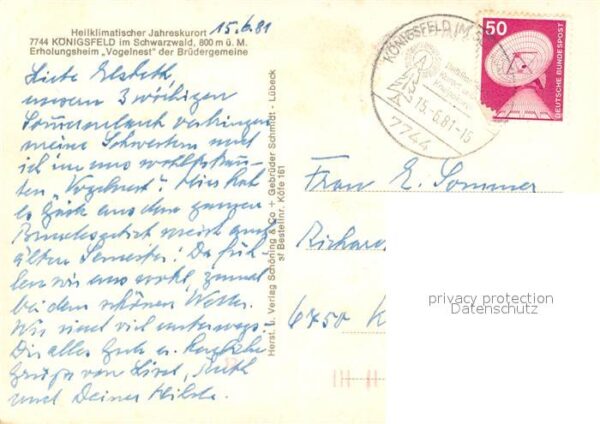 Heilklimatischer Jahreskurort
7744 KÖNIGSFELD im Schwarzwald, 800 m ü. M.
Erholungsheim „Vogelnest" der Brüdergemeine
15.6.81
Liebe Elsbeth,
unseren 3 wöchigen
Sommerurlaub verbringen
meine Schwestern und
ich im uns
ten „Vogelnest". Hier hat
es Gäste aus dem ganzen
Bundesgebiet meist auch
älteren Semester! Da füh-
len wir uns wohl, zumal
bei dem schönen Wetter.
Wir sind viel unterwegs.
Dir alles Gute u. herzliche
Grüße von Lisel, Ruth
und Deiner Hilde.
Herst. u. Verlag Schöning & Co + Gebrüder Schmidt - Lübeck
Bestellnr. Köfe 161
KÖNIGSFELD IM
15.-6.81-15
7744
50
DEUTSCHE BUNDESPOST
Frau E. Sommer
Richard
6750 K
privacy protection
Datenschutz